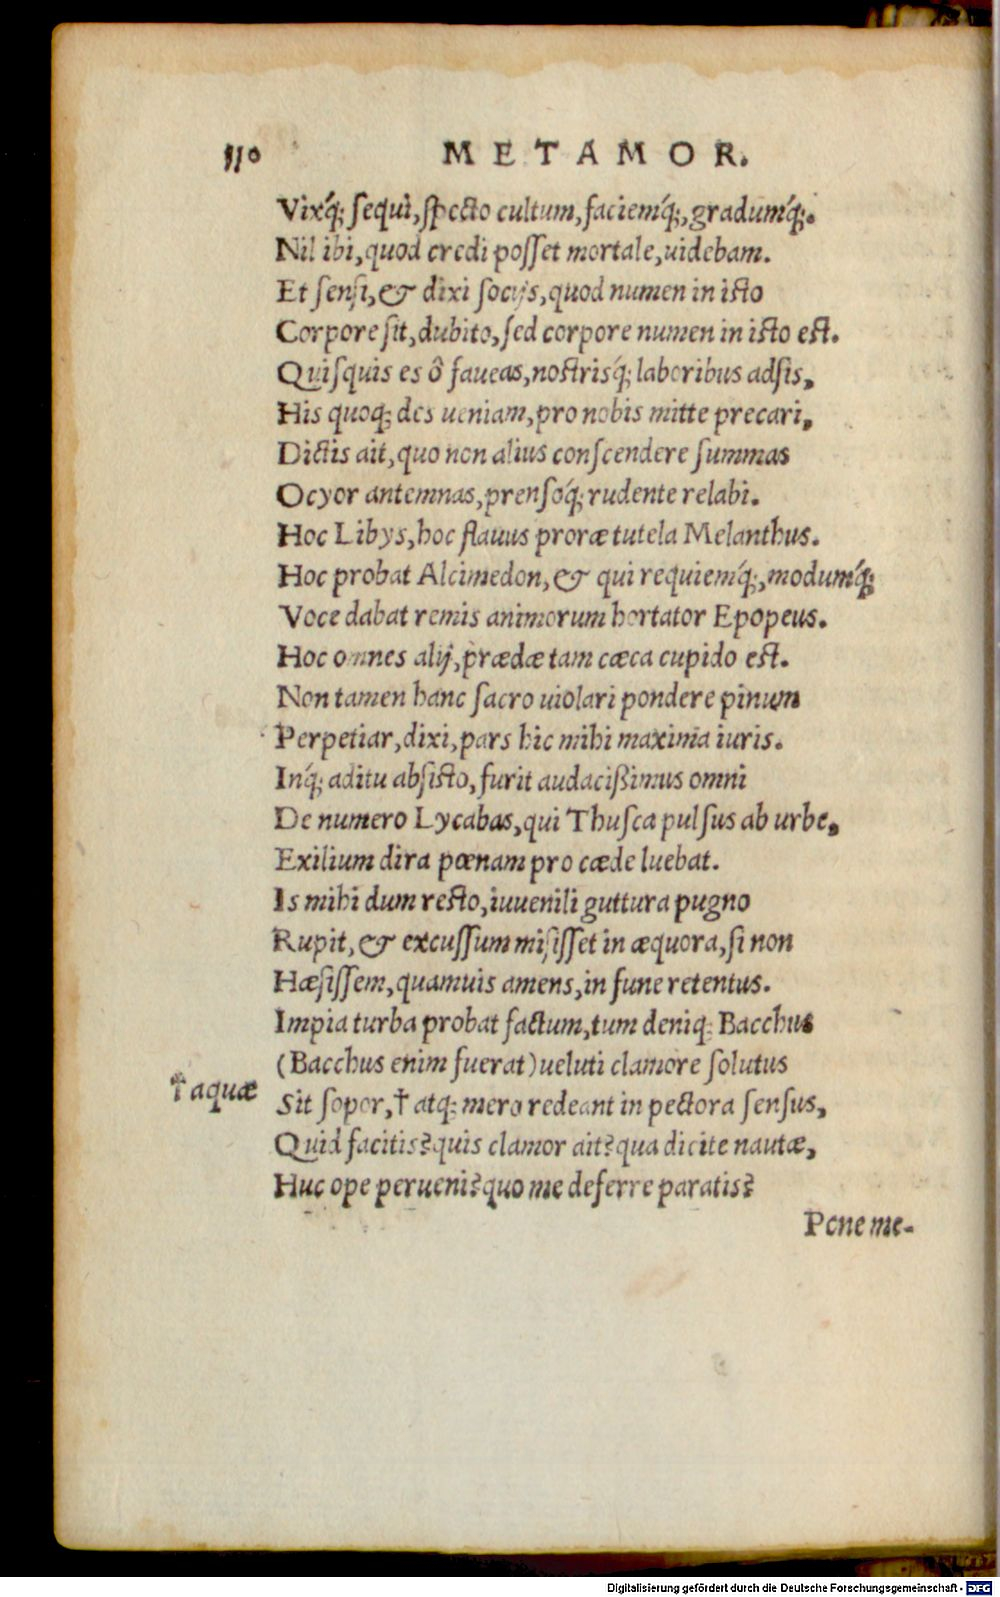 110 METAMOR.
Vixq́; sequi, specto cultum, faciemq́;, gradumq́;.
Nil ibi, quod credi posset mortale, uidebam.
Et sensi, & dixi socijs, quod numen in isto
Corpore sit, dubito, sed corpore numen in isto est.
Quisquis es ô faueas, nostrisq́; laboribus adsis,
His quoq; des ueniam, pro nobis mitte precari,
Dictis ait, quo non alius conscendere summas
Ocyor antemnas, prensoq́; rudente relabi.
Hoc Libys, hoc flauus proræ tutela Melanthus.
Hoc probat Alcimedon, & qui requiemq́;, modumq́;
Voce dabat remis animorum hortator Epopeus.
Hoc omnes alij, prædæ tam cæca cupido est.
Non tamen hanc sacro uiolari pondere pinum
Perpetiar, dixi, pars hic mihi maxima iuris.
Inq́; aditu absisto, furit audacißimus omni
De numero Lycabas, qui Thusca pulsus ab urbe,
Exilium dira pœnam pro cæde luebat.
Is mihi dum resto, iuuenili guttura pugno
Rupit, & excussum misisset in æquora, si non
Hæsissem, quamuis amens, in fune retentus.
Impia turba probat factum, tum deniq; Bacchus
(Bacchus enim fuerat) ueluti clamore solutus
†aquæ Sit sopor, † atq; mero redeant in pectora sensus,
Quid facitis? quis clamor ait? qua dicite nautæ,
Huc ope perueni? quo me deferre paratis?
Pone me-
Digitalisierung gefördert durch die Deutsche Forschungsgemeinschaft - DFG